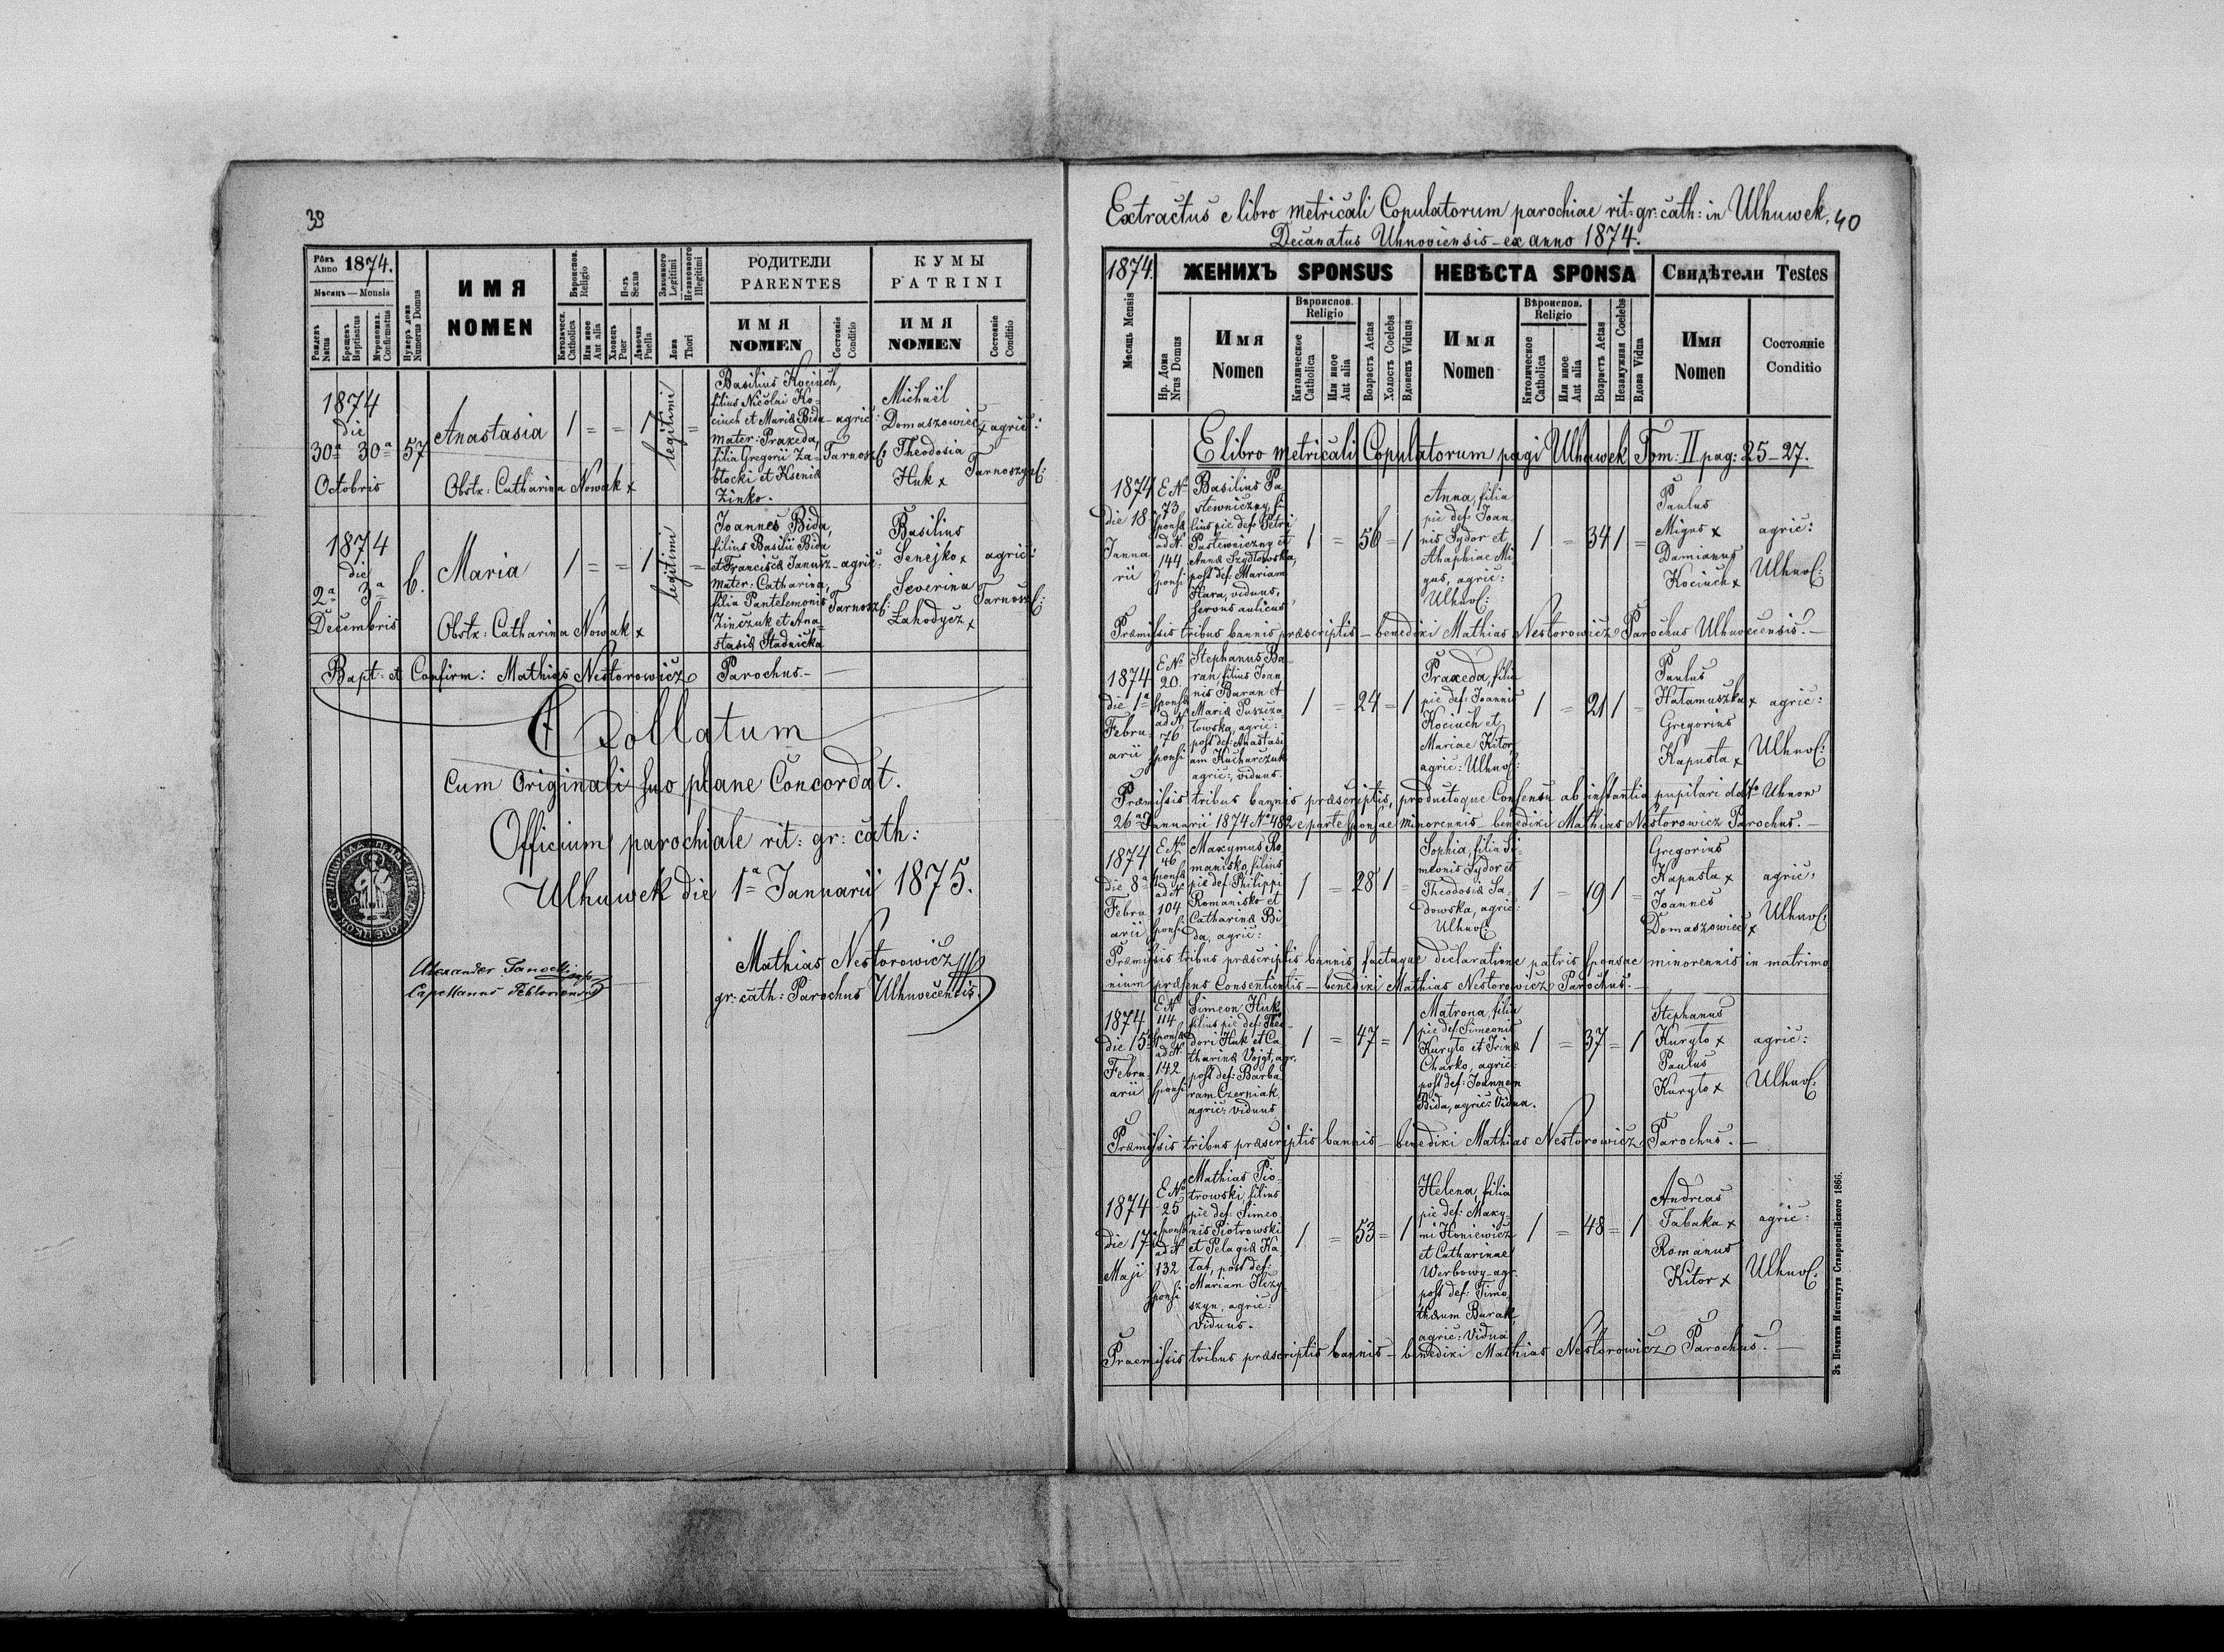 39
Рôкъ
Anno 1874.
Мѣсяць — Mensis
Рожденъ
Natus
Крещенъ
Baptisatus
Мѵропомаз.
Confirmatus
Нумеръ дома
Numerus Domus
ИМЯ
NOMEN
Вѣроиспов.
Religio
Католическ.
Catholica
Или иное
Aut alia
Полъ
Sexus
Хлопецъ
Puer
Дѣвочка
Puella
Законного
Legitimi
Незаконного
Illegitimi
Ложа
Thori
РОДИТЕЛИ
PARENTES
ИМЯ
NOMEN
Состояніе
Conditio
КУМЫ
PATRINI
ИМЯ
NOMEN
Состояніе
Conditio
1874
die
30a 30a
Octobris
57
Anastasia
1 = = 1
legitimi
=
Obstx: Catharina Nowak x
Basilius Kociuch,
filius Nicolai Ko-
ciuch et Mariæ Bida - agric:
Mater: Praxeda,
filia Gregorii Za- Tarnosz:
błocki et Kseniæ
Zinko.
Michaël
Domaszowiec x agric:
Theodosia
Huk x Tarnoszyn:
1874
die
2a 3a
Decembris
6.
Maria
1 = = 1
legitimi
=
Obstx: Catharina Nowak x
Joannes Bida,
filius Basilii Bida
et Franciscæ Janusz - agric:
Mater: Catharina,
filia Pantelemonis Tarnosz:
Zinczuk et Ana-
stasiæ Stadnicka
Basilius
Senejko x agric:
Severina Tarnosz:
Łahodycz x
Bapt: et Confirm: Mathias Nestorowicz Parochus. —
Collatum
Cum Originali suo plane Concordat.
Officium parochiale rit: gr: cath:
Ulhuwek die 1a Januarii 1875.
Mathias Nestorowicz
gr: cath: Parochus Ulhuvecensis.
Alexander
Capellanus
Extractus e libro Metricali Copulatorum parochiae rit: gr: cath: in Ulhuwek. 40
Decanatus Uhnoviensis - ex anno 1874.
1874.
ЖЕНИХЪ SPONSUS
НЕВѢСТА SPONSA
Свидѣтели Testes
Мѣсяць Mensis
Нр. Дома
Nrus Domus
Имя
Nomen
Вѣроиспов.
Religio
Католическое
Catholica
Или иное
Aut alia
Возрастъ Aetas
Холостъ Coelebs
Вдовецъ Viduus
Имя
Nomen
Вѣроиспов.
Religio
Католическое
Catholica
Или иное
Aut alia
Возрастъ Aetas
Незамужная Coelebs
Вдова Vidua
Имя
Nomen
Состояніе
Conditio
E libro metricali Copulatorum pagi Ulhuwek Tom: II pag: 25-27.
1874
die 18
Janua
rii
E No
73
sponsæ
ad N.
144
sponsi
Basilius Pa-
stewniczny, fi-
lius pie def: Petri
Pastewniczny et
Annæ Szydłowska,
post def: Mariam
Hara, viduus,
servus aulicus
1 = 56 = 1
Anna, filia
pie def: Joan-
nis Sydor et
Ahaphiae Mi-
gus, agric:
Ulhuv:
1 = 34 1 =
Paulus
Migus x
Damianus
Kociuch x
agric:
Ulhuv:
Præmissis tribus bannis præscriptis - benedixi Mathias Nestorowicz Parochus Ulhuvecensis. —
1874
die 1a
Febru-
arii
E No
20.
sponsæ
ad N
76
sponsi
Stephanus Ba-
ran, filius Joan-
nis Baran et
Mariæ Puszcza-
towska, agric:
post def: Anastasi-
am Kucharczuk
agric:, viduus
1 = 24 = 1
Praxeda, filia
pie def: Joannis
Kociuch et
Mariae Kitor,
agric: Ulhuv:
1 = 21 1 =
Paulus
Hałamuszka x
Gregorius
Kapusta x
agric:
Ulhuv:
Præmissis tribus bannis præscriptis, productoque Consensu ab instantia pupilari ddto Uhnow
26a Januarii 1874 No 482 e parte sponsae minorennis - benedixi Mathias Nestorowicz Parochus. —
1874
die 8a
Febru-
arii
E No
46
sponsæ
ad N
104
sponsi
Maxymus Ro-
manisko, filius
pie def: Philippi
Romanisko et
Catharinæ Bi-
da, agric:
1 = 28 1 =
Sophia, filia Si-
meonis Sydor et
Theodosiæ Sa-
dowska, agric:
Ulhuv:
1 = 19 1 =
Gregorius
Kapusta x
Joannes
Domaszowiec x
agric:
Ulhuv:
Præmissis tribus præscriptis bannis, factaque declaratione patris sponsae minorennis in matrimo-
nium præsens Consentientis - benedixi Mathias Nestorowicz Parochus. —
1874
die 15a
Febru-
arii
E No
114
sponsæ
ad N.
142
sponsi
Simeon Huk,
filius pie def: Theo-
dori Huk et Ca-
tharinæ Vojgt, agr.
post def: Barba-
ram Czerniak
agric: viduus
1 = 47 = 1
Matrona, filia
pie def: Simeonis
Kuryło et Irinæ
Charko, agric:
post def: Joannem
Bida, agric: Vidua.
1 = 37 = 1
Stephanus
Kuryło x
Paulus
Kuryło x
agric:
Ulhuv:
Præmissis tribus præscriptis bannis - benedixi Mathias Nestorowicz Parochus. —
1874
die 17a
Maji
E No
25
sponsæ
ad N
132
sponsi
Mathias Pio-
trowski, filius
pie def: Simeo-
nis Piotrowski
et Pelagiæ Ka-
łat, post def:
Mariam Ilczy-
szyn, agric:
Viduus.
1 = 53 = 1
Helena, filia
pie def: Maxy-
mi Honiewicz
et Catharinae
Werbowy - agr.
post def: Timo-
thæum Burak,
agric: Vidua
1 = 48 = 1
Andreas
Tabaka x
Romanus
Kitor x
agric:
Ulhuv:
Praemissis tribus præscriptis bannis - benedixi Mathias Nestorowicz Parochus. —
Зъ Печатнѣ Института Ставропигійского 1866.